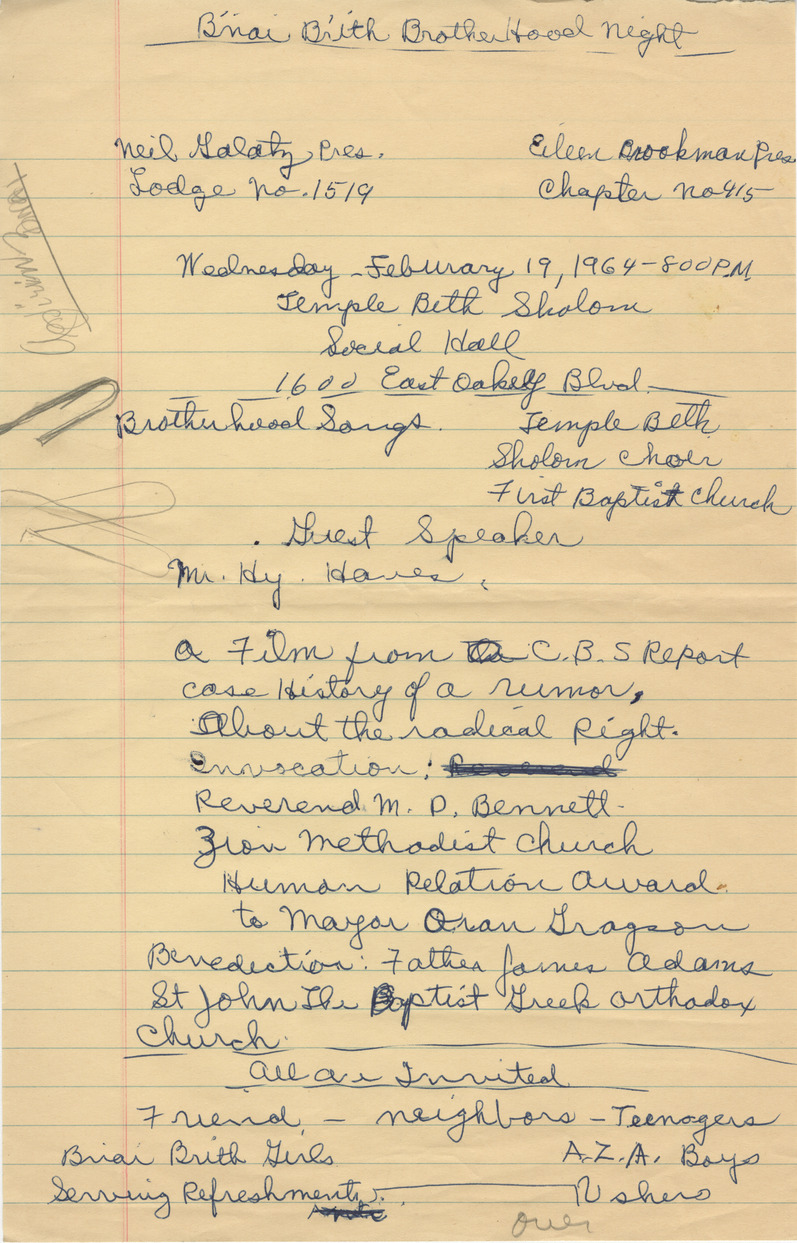 B'nai B'rith BrotherHood Night
Neil Galatz Pres. Eileen Brookman Pres
Lodge No. 1519 Chapter No 415
Wednesday - Feburary 19, 1964 - 800 P.M.
Temple Beth Sholom
Social Hall
1600 East Oakey Blvd.
Brotherhood Songs. Temple Beth
Sholom Choir
First Baptist Church
Guest Speaker
Mr. Hy.
A Film from C.B.S Report
case History of a rumor,
About the radical Right.
Invocation:
Reverend M. D. Bennett
Zion Methodist Church
Human Relation Award
to Mayor Oran Gragson
Benediction: Father James Adams
St John The Baptist Greek Orthodox
Church
All are Invited
Friend, - Neighbors - Teenagers
Bnai Brith Girls A.Z.A. Boys
Serving Refreshments. Ushers
over